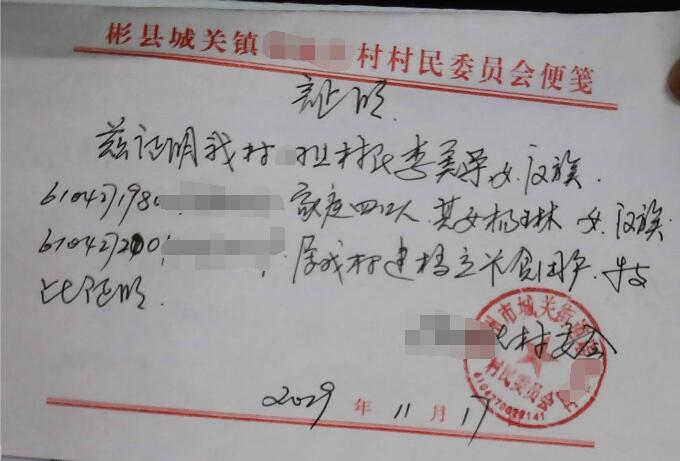 彬县城关镇 村村民委员会便笺
证明
兹证明我村 组村民李美 女 汉族
6104271980 家庭四口人 其女杨 林 女 汉族
610427200 属我村建档立卡贫困户 特
此证明
村委会
市城关街道
村民委员会
6104270029141
2029年11月17日